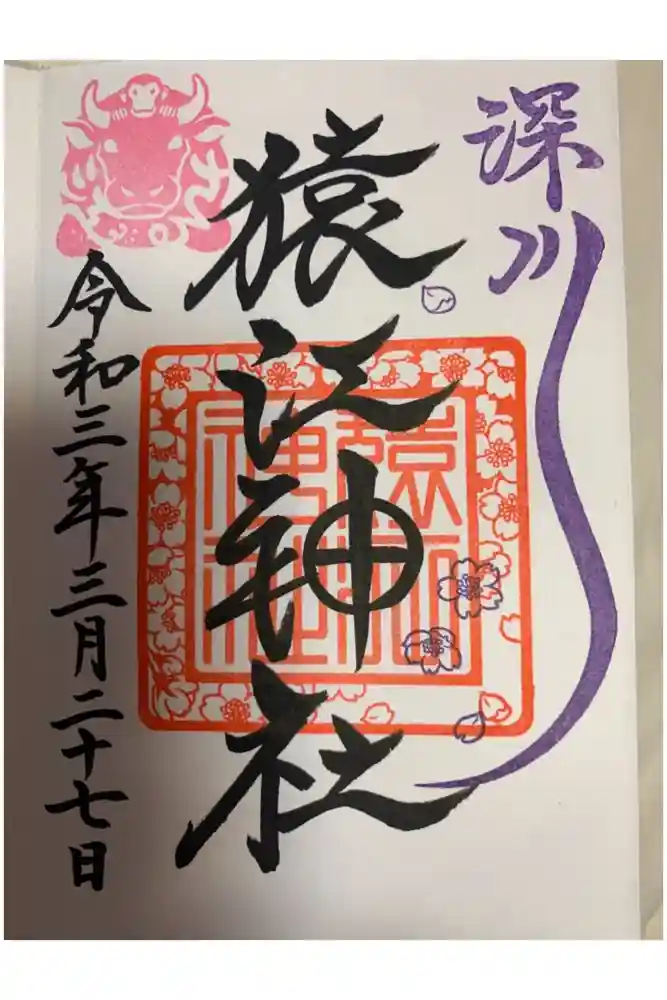 深川
猿江神社
猿江
神社
令和三年三月二十七日